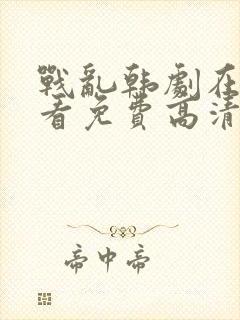 戰亂韩劇在
看免費高清
帝中帝